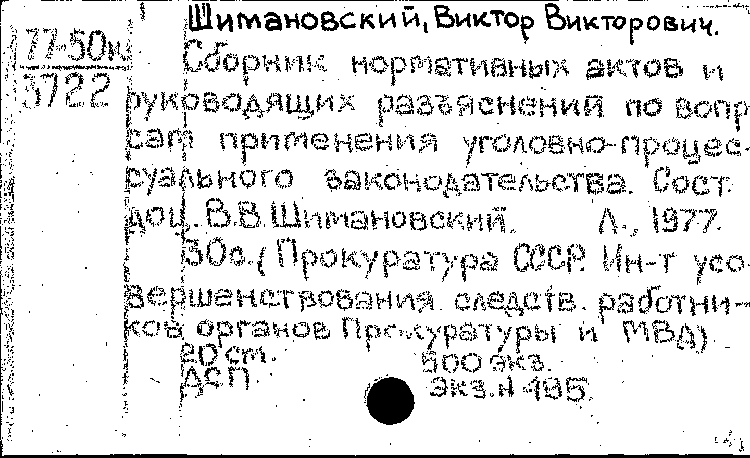 Шимановский, Виктор Викторович.
77-50к
3722
Сборник нормативных актов и
руководящих разъяснений по вопр
сам применения уголовно-процес-
суального законодательства. Сост.
доц. В.В.Шимановский. Л., 1977.
30с. (Прокуратура СССР. Ин-т усо-
вершенствования следств. работни-
ков органов Прокуратуры и МВД)
20 см. 500 экз.
ДСП. Экз.№ 495.